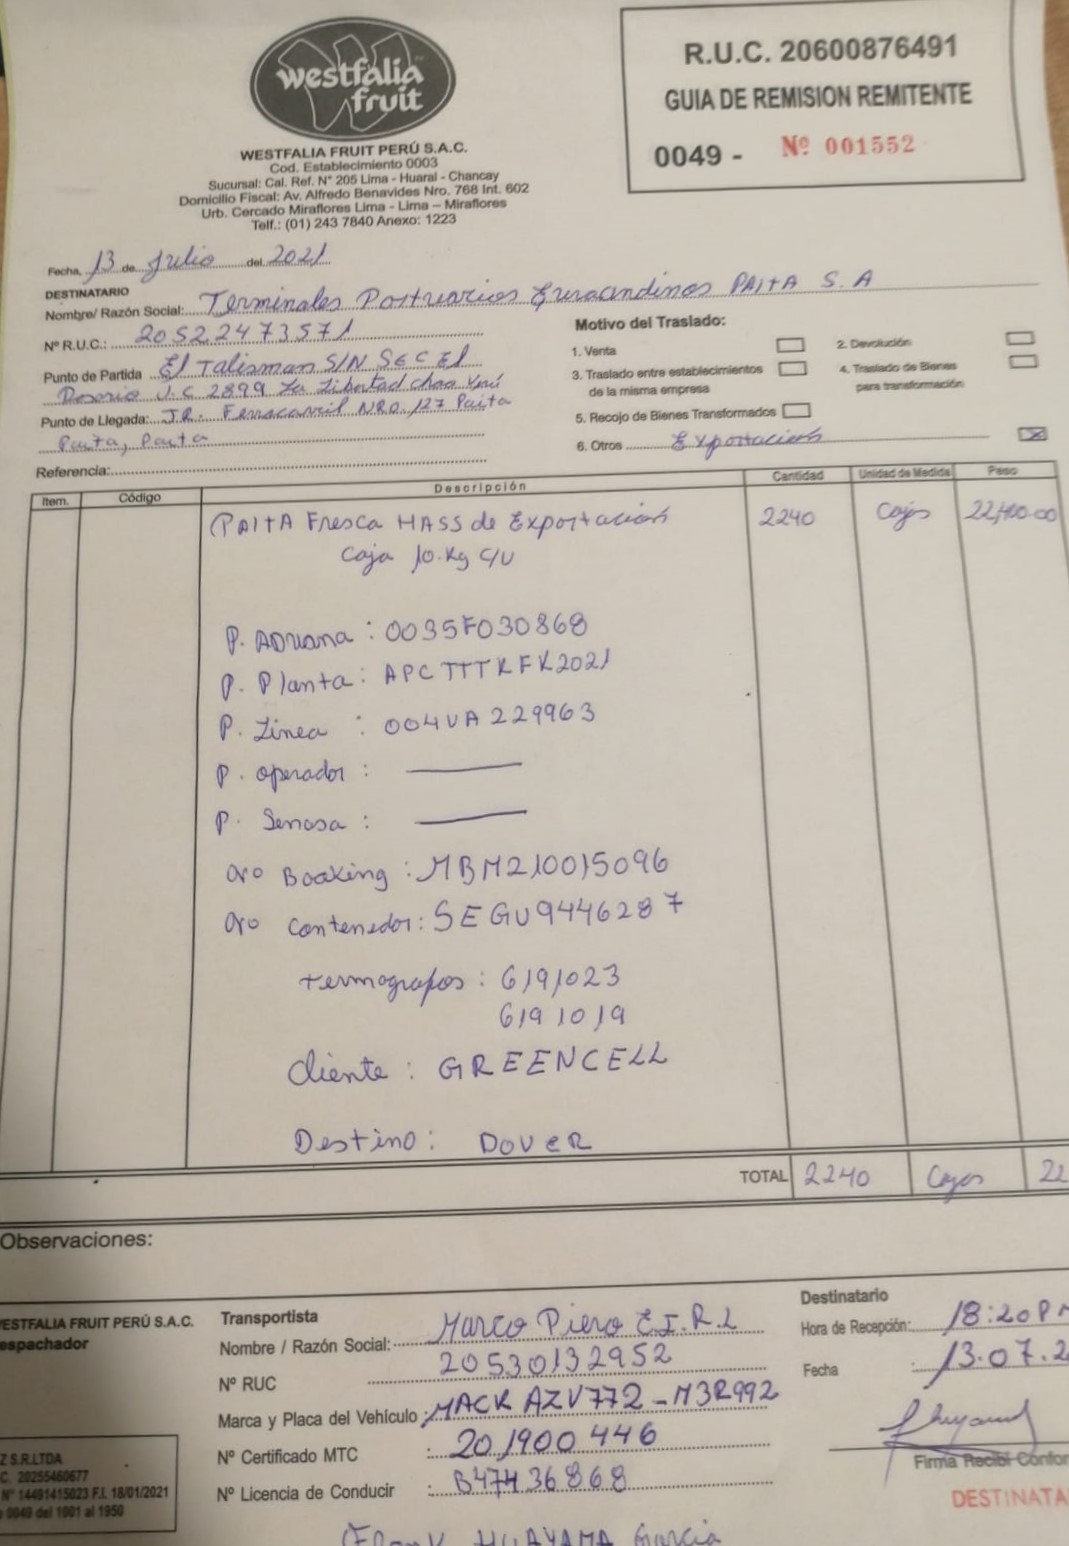 westfalia
fruit
WESTFALIA FRUIT PERÚ S.A.C.
Cod. Establecimiento 0003
Sucursal: Cal. Ref. N° 205 Lima - Huaral - Chancay
Domicilio Fiscal: Av. Alfredo Benavides Nro. 768 Int. 602
Urb. Cercado Miraflores Lima - Lima – Miraflores
Telf.: (01) 243 7840 Anexo: 1223
R.U.C. 20600876491
GUIA DE REMISION REMITENTE
0049 - Nº 001552
Fecha, 13 de Julio del 2021
DESTINATARIO
Nombre/ Razón Social: Terminales Portuarios Euroandinos PAITA S.A
Nº R.U.C.: 20522473571
Punto de Partida El Talisman S/N SEC El
Rosario U.C 2899 La Libertad chao Virú
Punto de Llegada: JR. Ferrocarril NRO. 127 Paita
Paita, Paita
Referencia:
Motivo del Traslado:
1. Venta
2. Devolución
3. Traslado entre establecimientos
de la misma empresa
4. Traslado de Bienes
para transformación
5. Recojo de Bienes Transformados
6. Otros Exportación X
Item. Código Descripción Cantidad Unidad de Medida Peso
PAltA Fresca HASS de Exportación 2240 Cajas 22,400.00
Caja 10.Kg c/u
P. ADuana : 0035F030868
P. Planta : APCTTTKFK2021
P. Linea : 004UA229963
P. operador :
P. Senasa :
Nro Booking : MBM210015096
Nro Contenedor: SEGU9446287
termografos : 6191023
6191019
Cliente : GREENCELL
Destino : DOVER
TOTAL 2240 Cajas 22
Observaciones:
ESTFALIA FRUIT PERÚ S.A.C.
espachador
Transportista
Nombre / Razón Social: Marco Piero E.I.R.L
Nº RUC 20530132952
Marca y Placa del Vehículo : MACK AZV772 - M3R992
Nº Certificado MTC : 201900446
Nº Licencia de Conducir : B47436868
Destinatario
Hora de Recepción: 18:20 PM
Fecha : 13.07.2
Firma Recibí Confor
DESTINATA
Z S.R.LTDA
C. 20255460677
N° 14491415023 F.I. 18/01/2021
0049 del 1001 al 1950
HUAYAMA Garcia